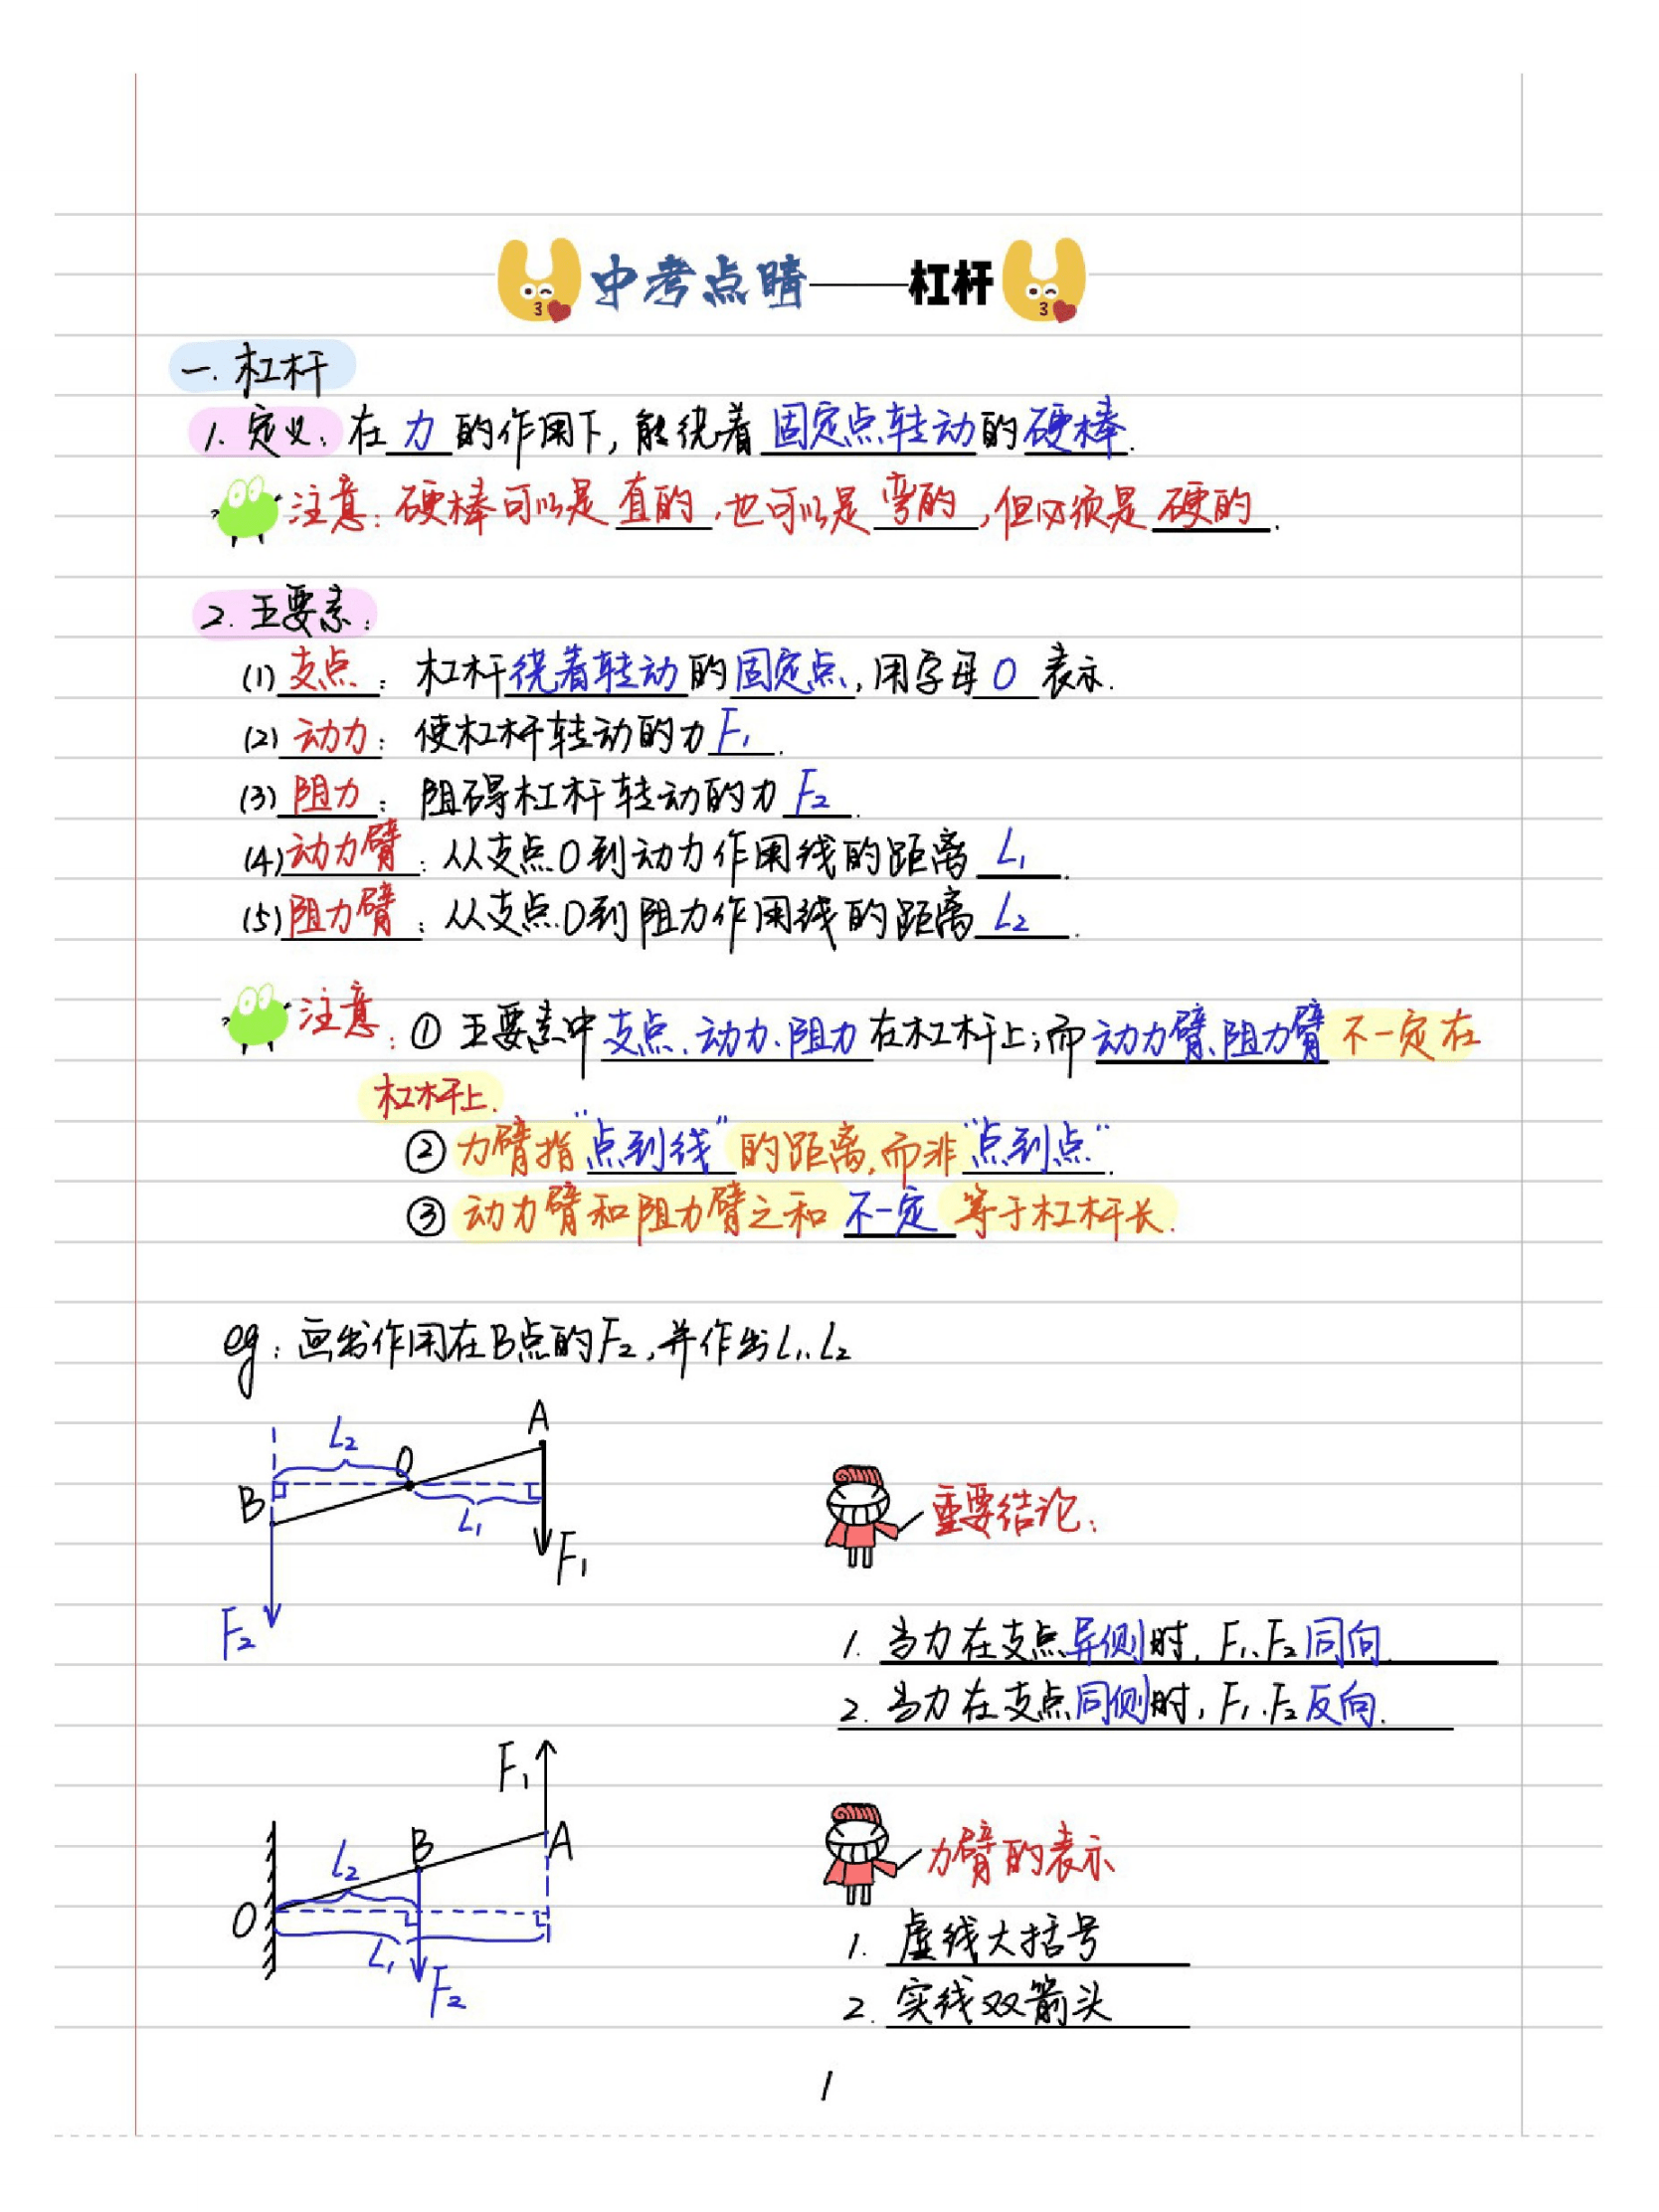 中考点睛——杠杆
一. 杠杆
1. 定义: 在力的作用下, 能绕着固定点转动的硬棒.
注意: 硬棒可以是直的, 也可以是弯的, 但必须是硬的.
2. 五要素:
(1) 支点: 杠杆绕着转动的固定点, 用字母O表示.
(2) 动力: 使杠杆转动的力F₁.
(3) 阻力: 阻碍杠杆转动的力F₂.
(4) 动力臂: 从支点O到动力作用线的距离L₁.
(5) 阻力臂: 从支点O到阻力作用线的距离L₂.
注意: ① 五要素中支点、动力、阻力在杠杆上; 而动力臂、阻力臂不一定在
杠杆上.
② 力臂指“点到线”的距离, 而非“点到点”.
③ 动力臂和阻力臂之和不一定等于杠杆长.
eg: 画出作用在B点的F₂, 并作出L₁、L₂
A
L₂
O
B
L₁
F₁
F₂
重要结论:
1. 当力在支点异侧时, F₁、F₂同向.
2. 当力在支点同侧时, F₁、F₂反向.
F₁
B
A
L₂
O
L₁
F₂
力臂的表示
1. 虚线大括号
2. 实线双箭头
1